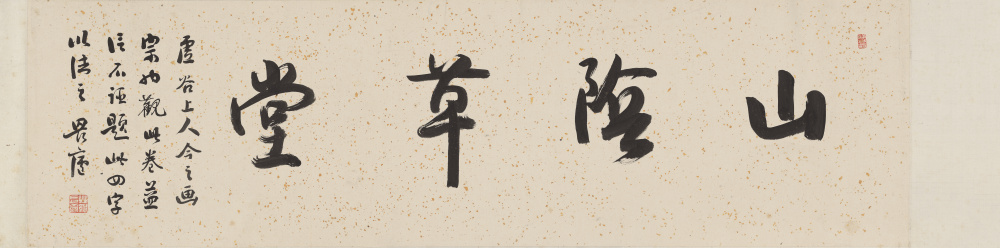 山陰草堂
虛谷上人今之画
宗也觀此卷益
信不誣題此四字
以誌之 畏廬